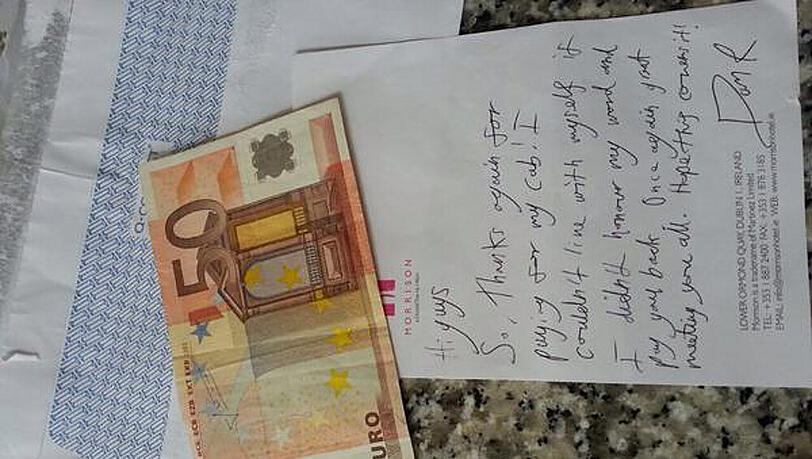 MORRISON
Hi guys
So, thanks again for
paying for my cab! I
couldn't live with myself if
I didn't honour my word and
pay you back. Once again great
meeting you all. Hope this covers it!
Dan R
LOWER ORMOND QUAY, DUBLIN 1, IRELAND
Morrison is a tradename of Martinez Limited
TEL: +353 1 887 2400 FAX: +353 1 878 3185
EMAIL: info@morrisonhotel.ie WEB: www.morrisonhotel.ie
50
BCE ECB EZB EKT EKP
EURO